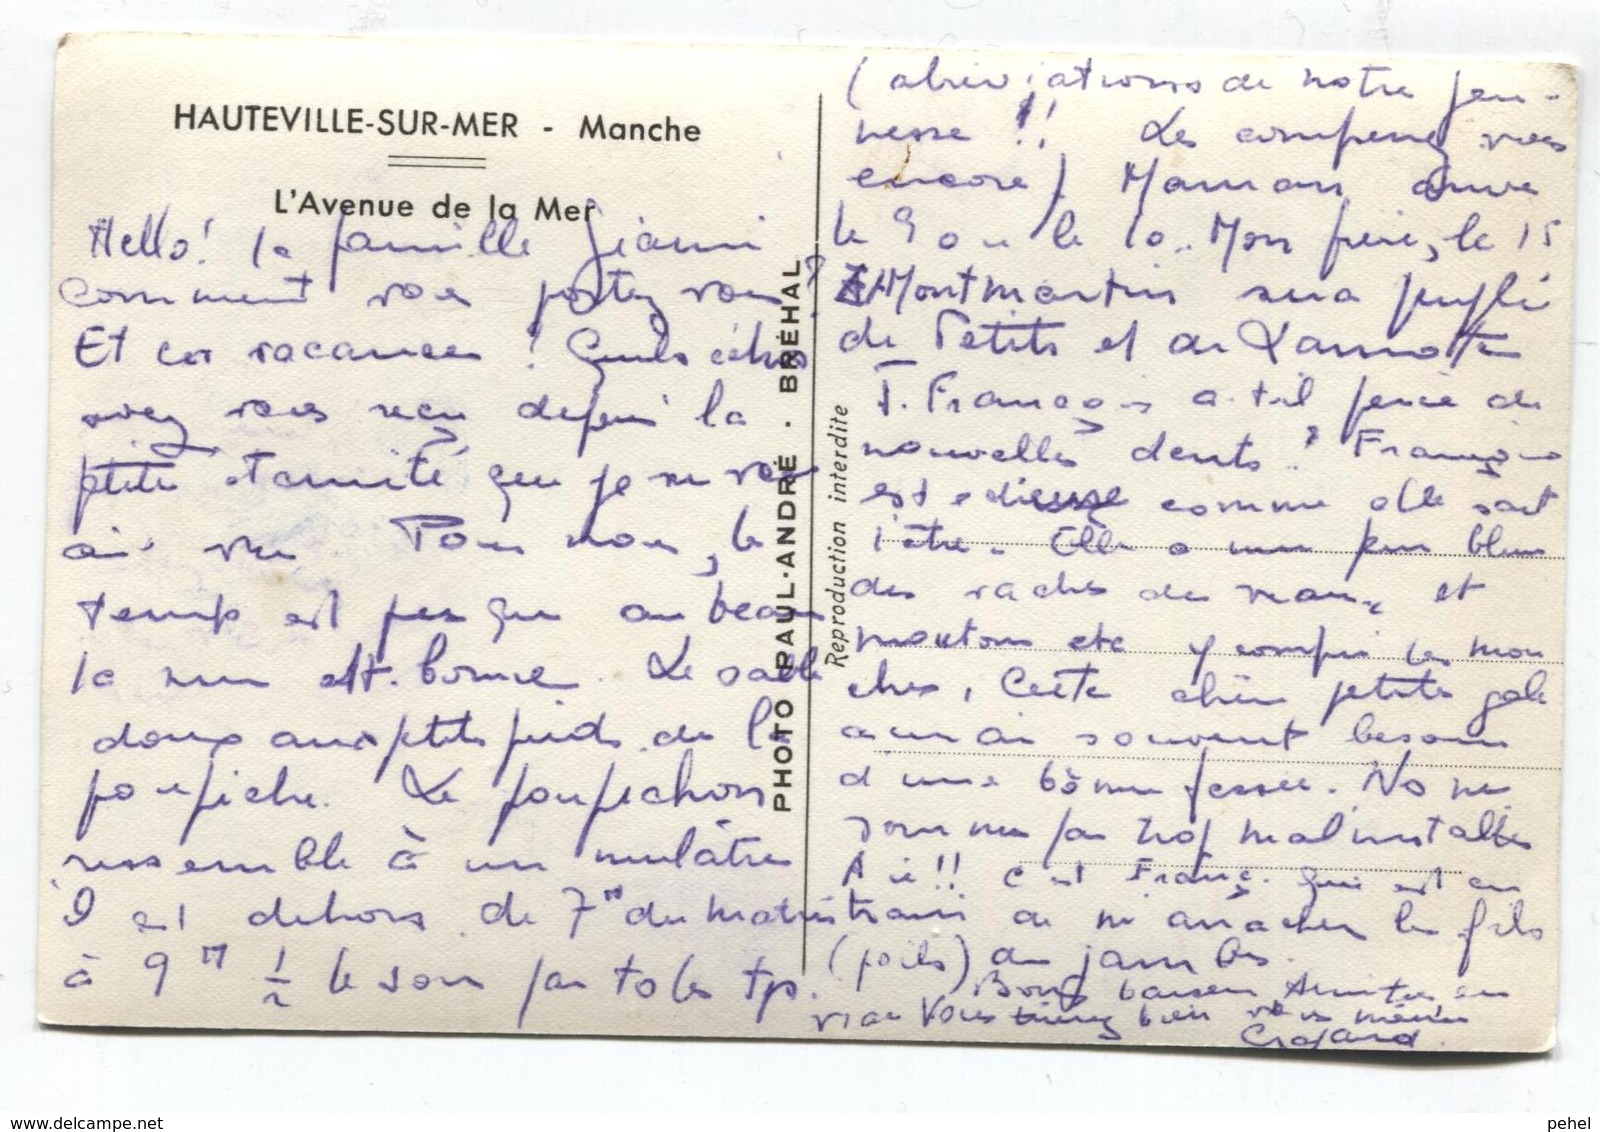 HAUTEVILLE-SUR-MER - Manche
L'Avenue de la Mer
Hello! la famille
comment vous portez vous?
Et ces vacances! Quels échos
avez vous reçu depuis la
ptite éternité que je ne vous
ai vu. Pour nous, le
temps est plus que au beau
la mer est bonne. Le sable
doux aux ptits pieds de la
poupiche. Le poupichon
ressemble à un mulâtre
Il est dehors de 7H du matin
à 9H 1/2 le soir par ts les tps.
PHOTO PAUL-ANDRÉ - BRÉHAL
Reproduction interdite
(abréviations de notre jeu-
nesse!! Les comprenez vous
encore) Maman arrive
le 9 ou le 10. Mon frère, le 15
Montmartin sera peuplé
de Petits et de Lamotte
F. François a-t-il percé de
nouvelles dents? François
est comme elle sait
l'être. Elle a une peur bleue
des vaches des veaux et
moutons etc y compris les mou
ches. Cette chère petite gale
aurait souvent besoin
d'une bonne fessée. Nous ne
sommes pas trop mal installés
Aïe!! C'est Franç. qui est en
train de m'arracher les fils
(poils) des jambes.
Bons baisers
Vous bien